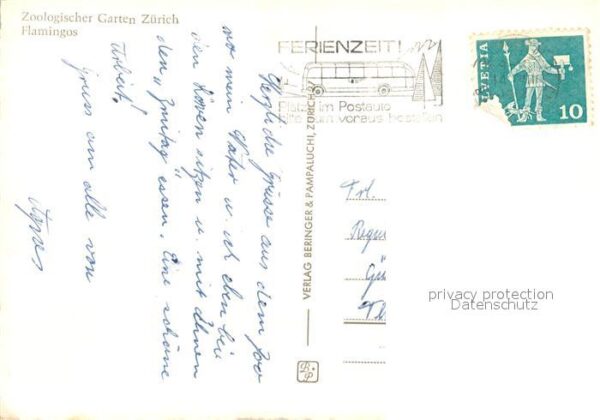 Zoologischer Garten Zürich
Flamingos
FERIENZEIT!
Platz im Postauto
bitte zum voraus bestellen
HELVETIA
10
Herzliche Grüsse aus dem Zoo
wo mein Vater u. ich eben bei
den Löwen sitzen u. mit Ihnen
den "Zmittag" essen. Eine schöne
Arbeit!
Gruss an alle von
Agnes
VERLAG BERINGER & PAMPALUCHI, ZÜRICH
Frl.
privacy protection
Datenschutz